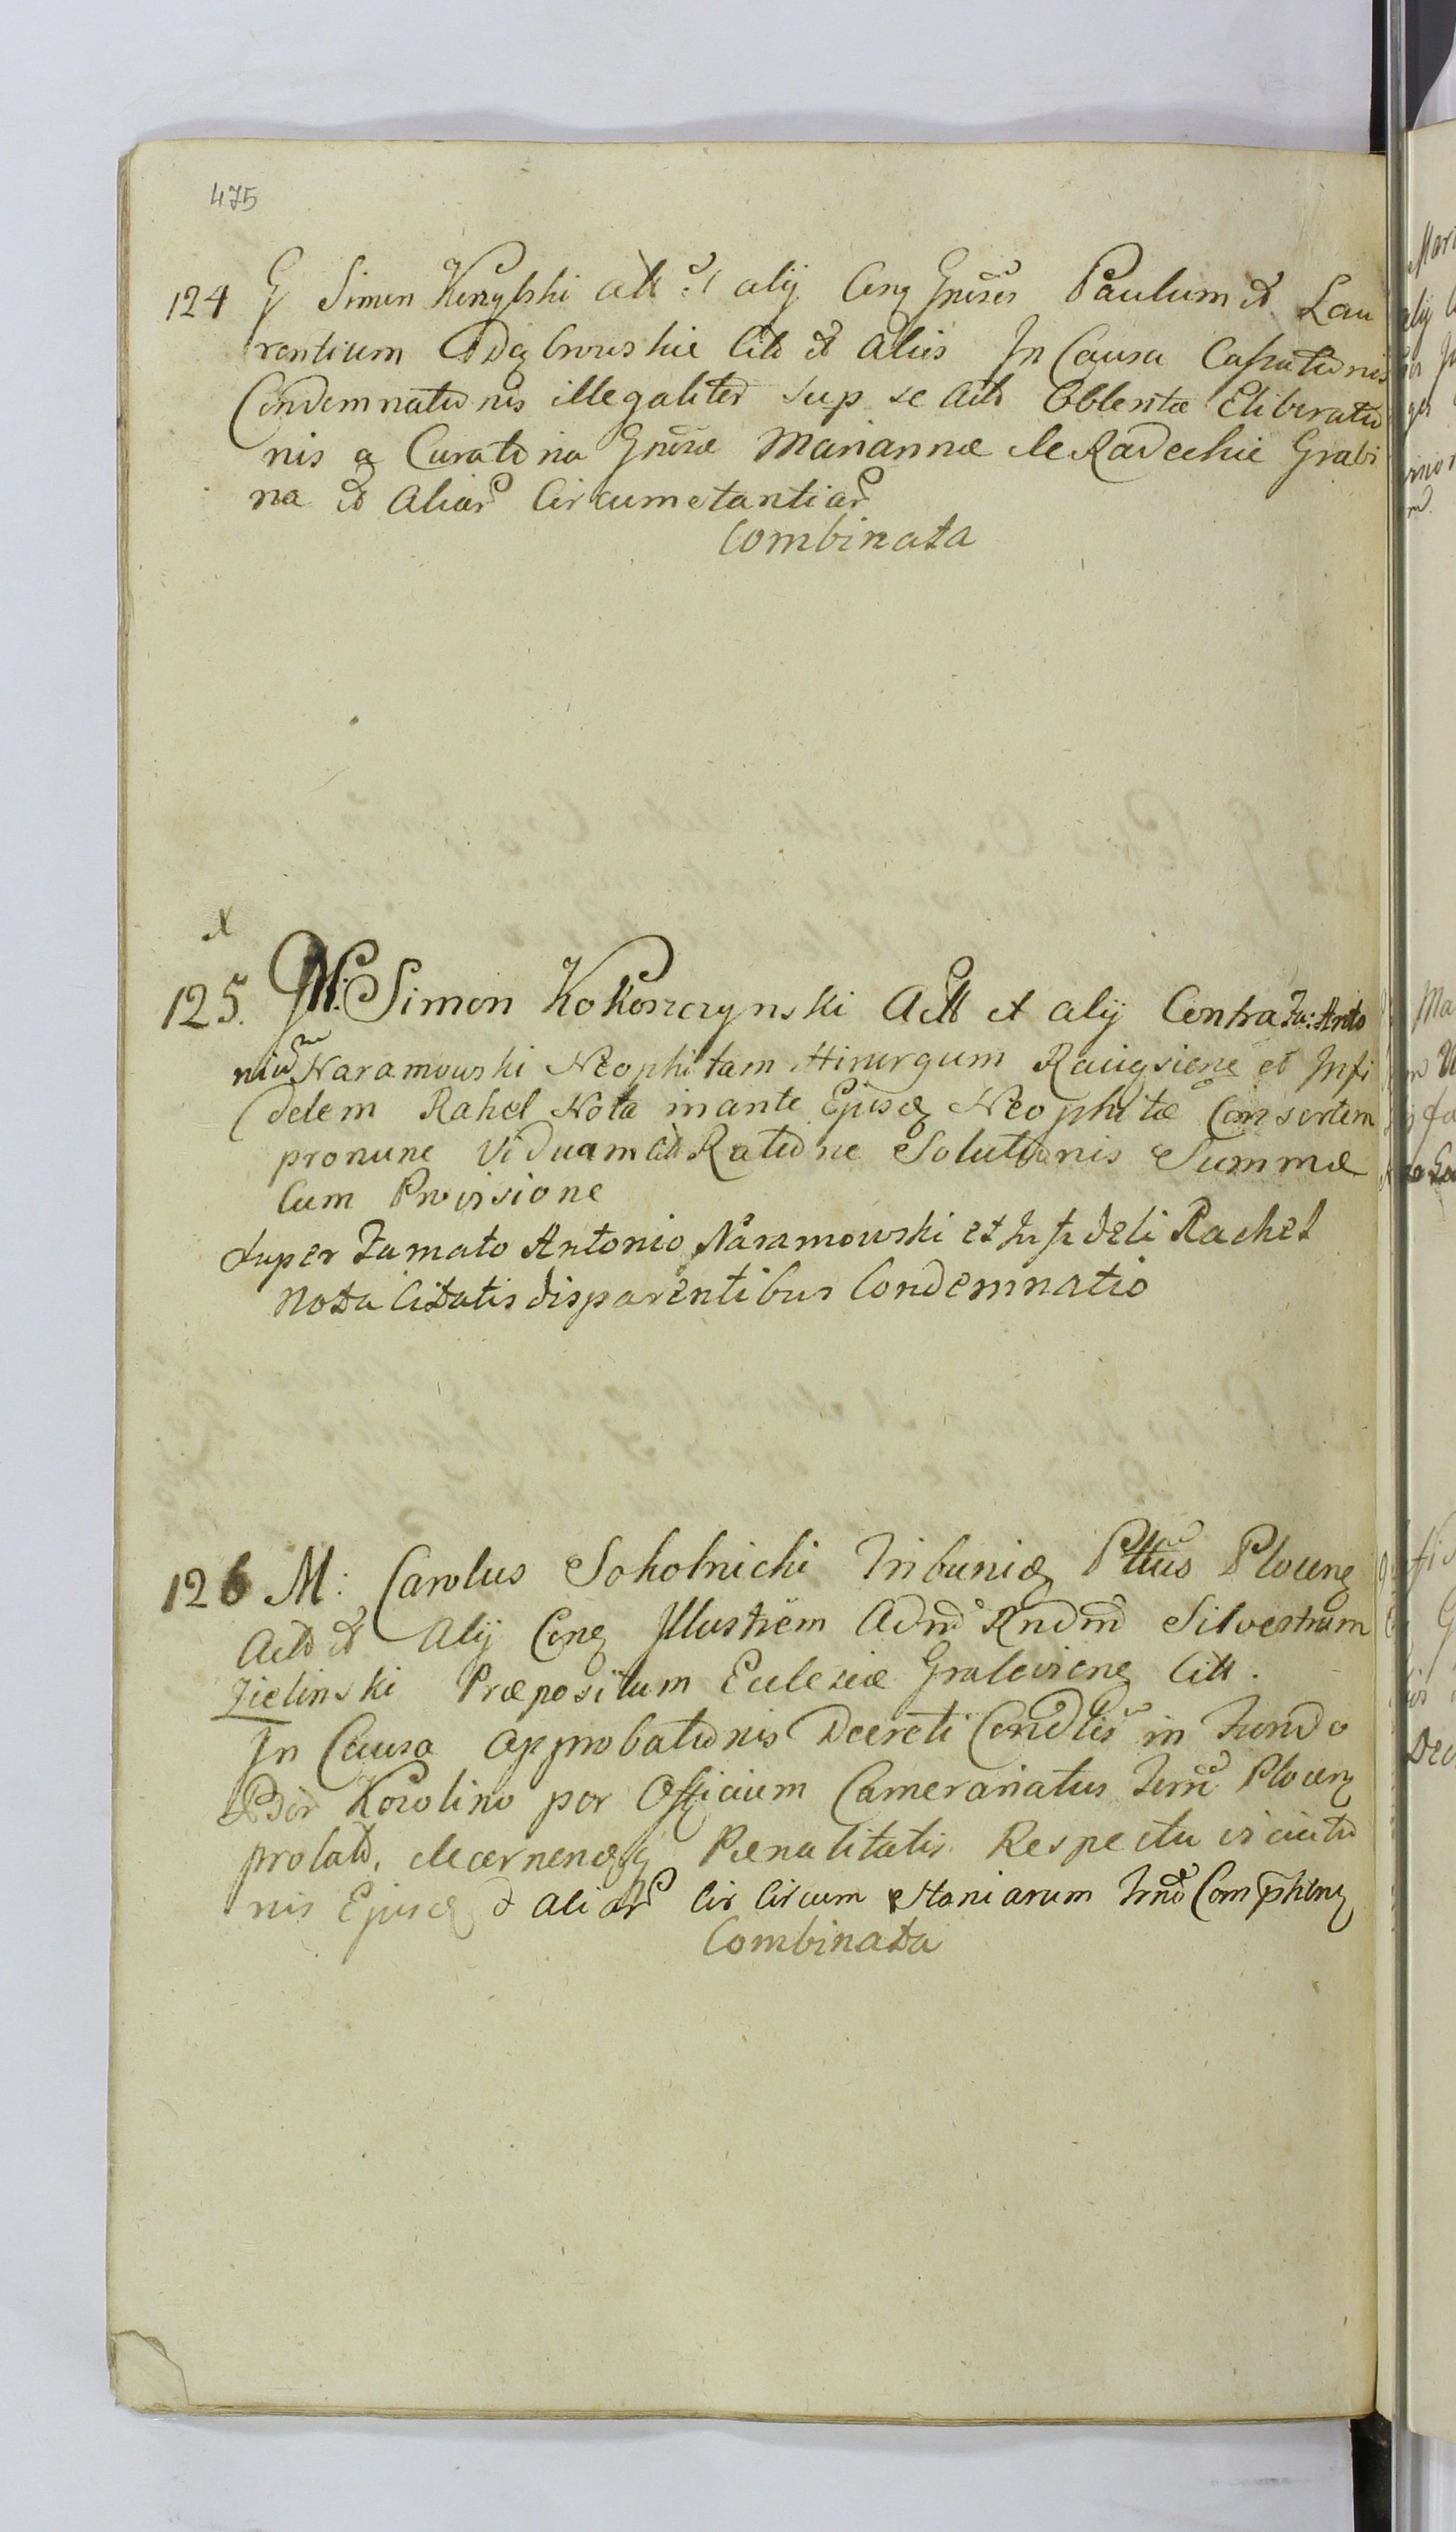 475
124 G Simon Kinzylski Act et alij Cong Gnrses Paulum et Lau
rentium Dąbrowskie Citt et Aliis In Causa Cassationis
Condemnationis illegaliter sup se Acto Obtentæ Eliberatio
nis a Curatona Gnrsæ Mariannæ de Radeckie Grabi
na et Aliar Circumstantiar
Combinata
x
125. M: Simon Kokoszczynski Actt et alij Contra Fa: Anto
nium Naramowski Neophitam Hirurgum Raciąsiens et Infi
delem Rahel Nota inante Ejusq Neophitæ Consortem
pronunc Viduam Citt Ratione Solutionis Summæ
Cum Provisione
Super Famato Antonio Naramowski et Infideli Rachel
Nota Citatis disparentibus Condemnatio
126 M: Carolus Sokolnicki Tribunid Pttus Plocens
Acto et Alij Cong Illustrem Admd Rndmd Silvestrum
Zielinski Præpositum Eclesiæ Graleviens Citt.
In Causa Approbationis Decreti Condlis in Fundo
Bor Kozolino per Officium Camerariatus Terræ Plocens
prolato, decernendæq Pænalitatis Respectu
nis Ejusd et aliar Cir Circum Staniarum Trnd
Combinata